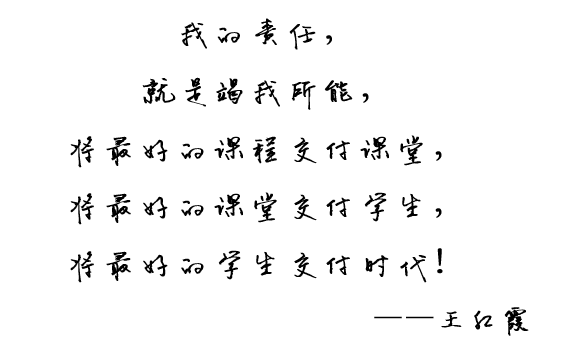 我的责任，
就是竭我所能，
将最好的课程交付课堂，
将最好的课堂交付学生，
将最好的学生交付时代！
——王红霞